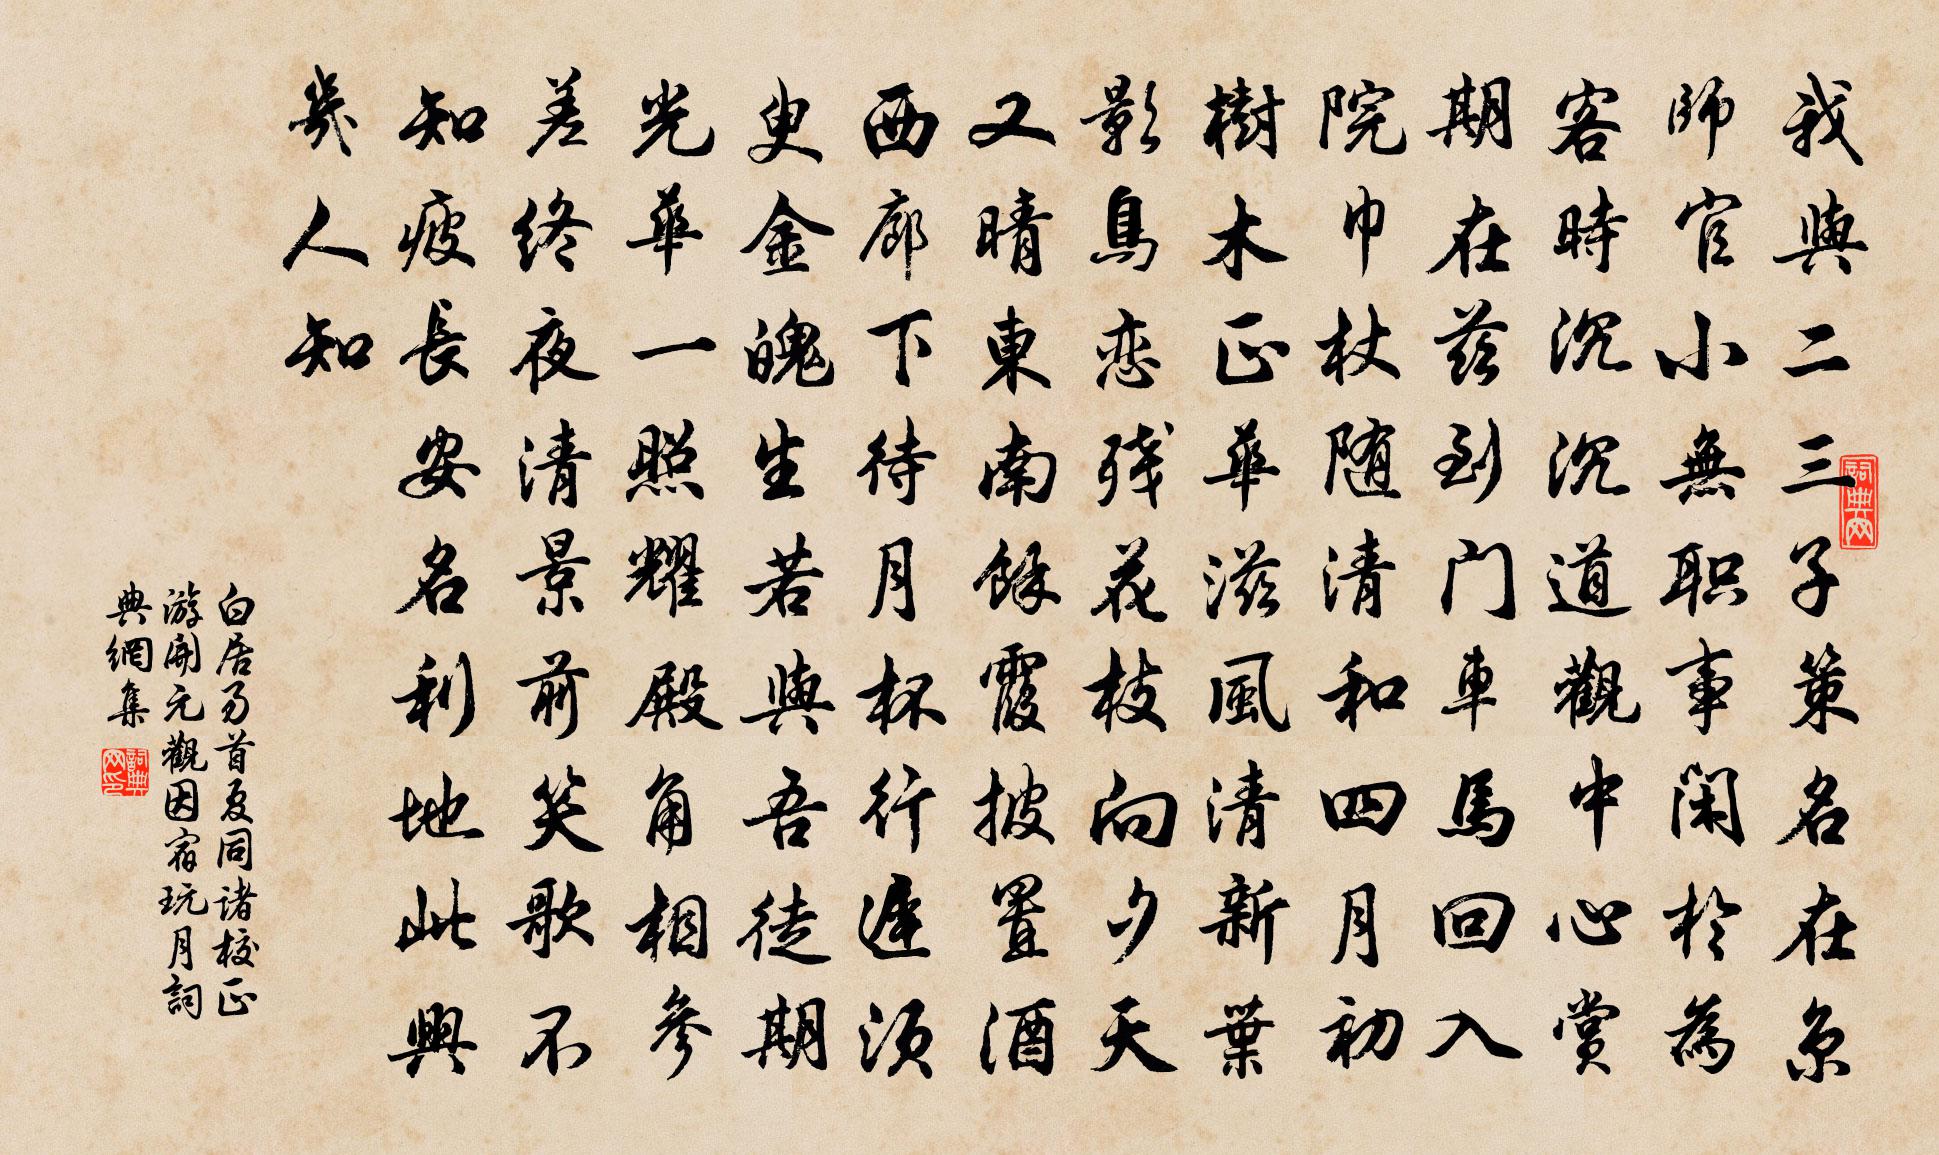 我與二三子策名在京
師官小無职事闲於為
客時沉沉道觀中心賞
期在兹到门車馬回入
院巾杖随清和四月初
樹木正華滋風清新葉
影鳥恋残花枝向夕天
又晴東南餘霞披置酒
西廊下待月杯行遲须
臾金魄生若與吾徒期
光華一照耀殿角相參
差終夜清景前笑歌不
知疲長安名利地此興
幾人知
白居易首夏同诸校正
游開元觀因宿玩月詞
典網集
詞典网
詞典网印